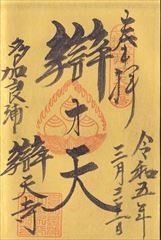 奉拝
令和五年
三月三十一日
辯才天
多加良浦
辯天寺